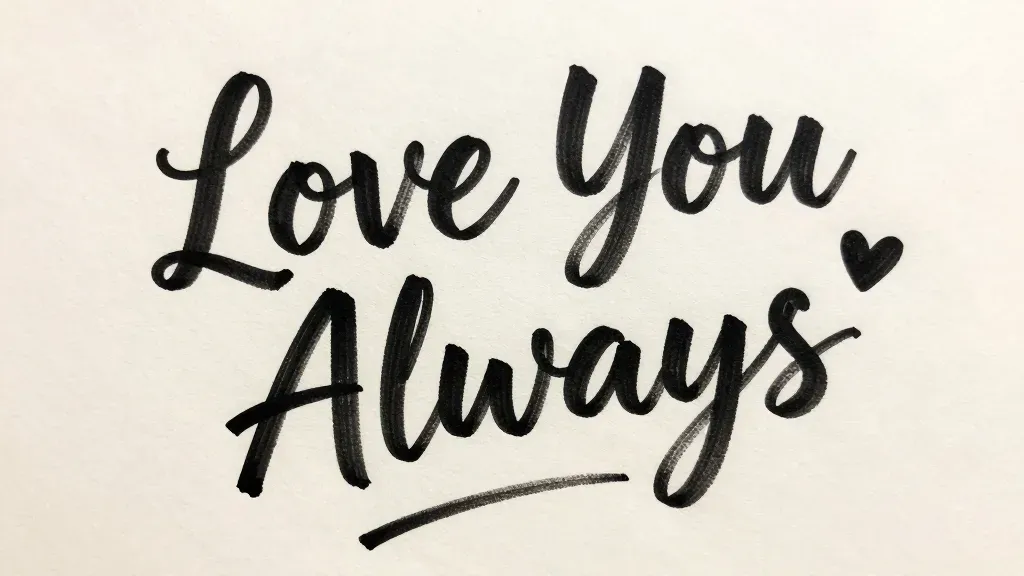 Love You
Always